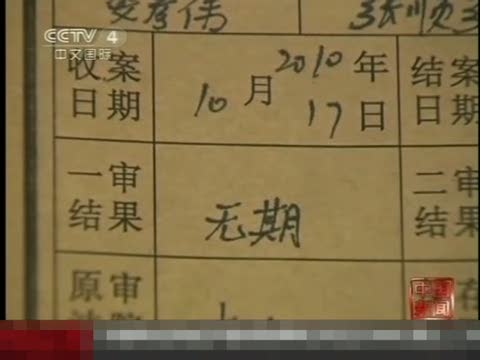 CCTV 4
中文国际
收案
日期
2010年
10月17日
结案
日期
一审
结果
无期
二审
结果
原审